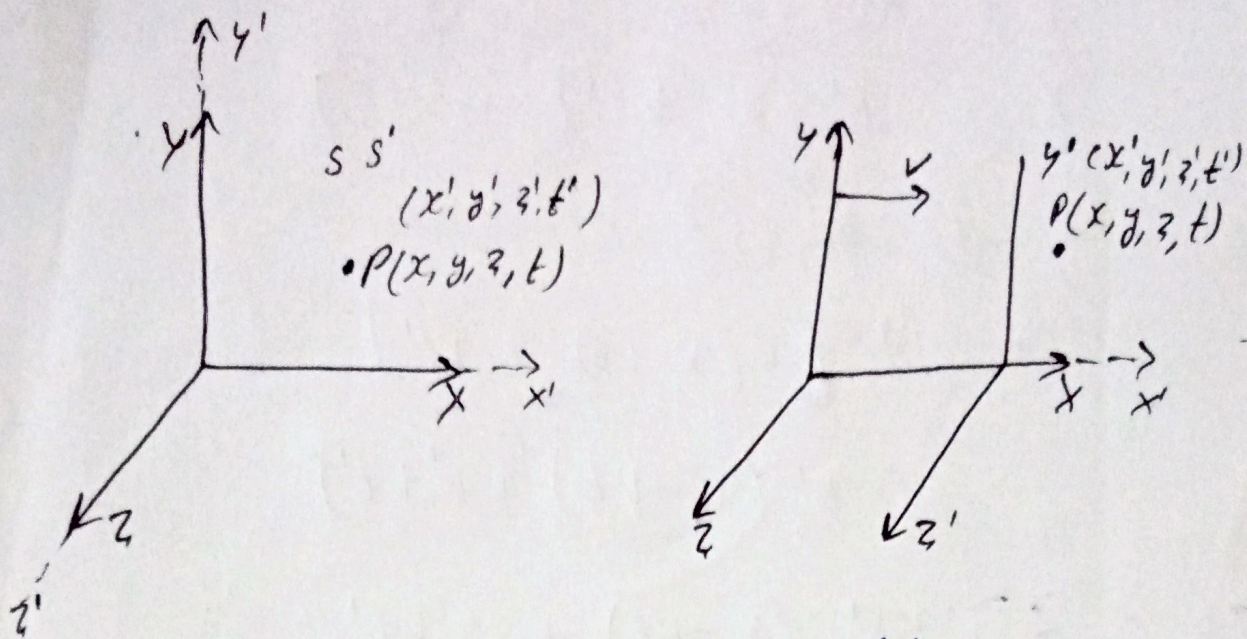 y'
y
S S'
(x', y', z', t')
P(x, y, z, t)
x x'
z
z'
y
v
y' (x', y', z', t')
P(x, y, z, t)
x x'
z
z'